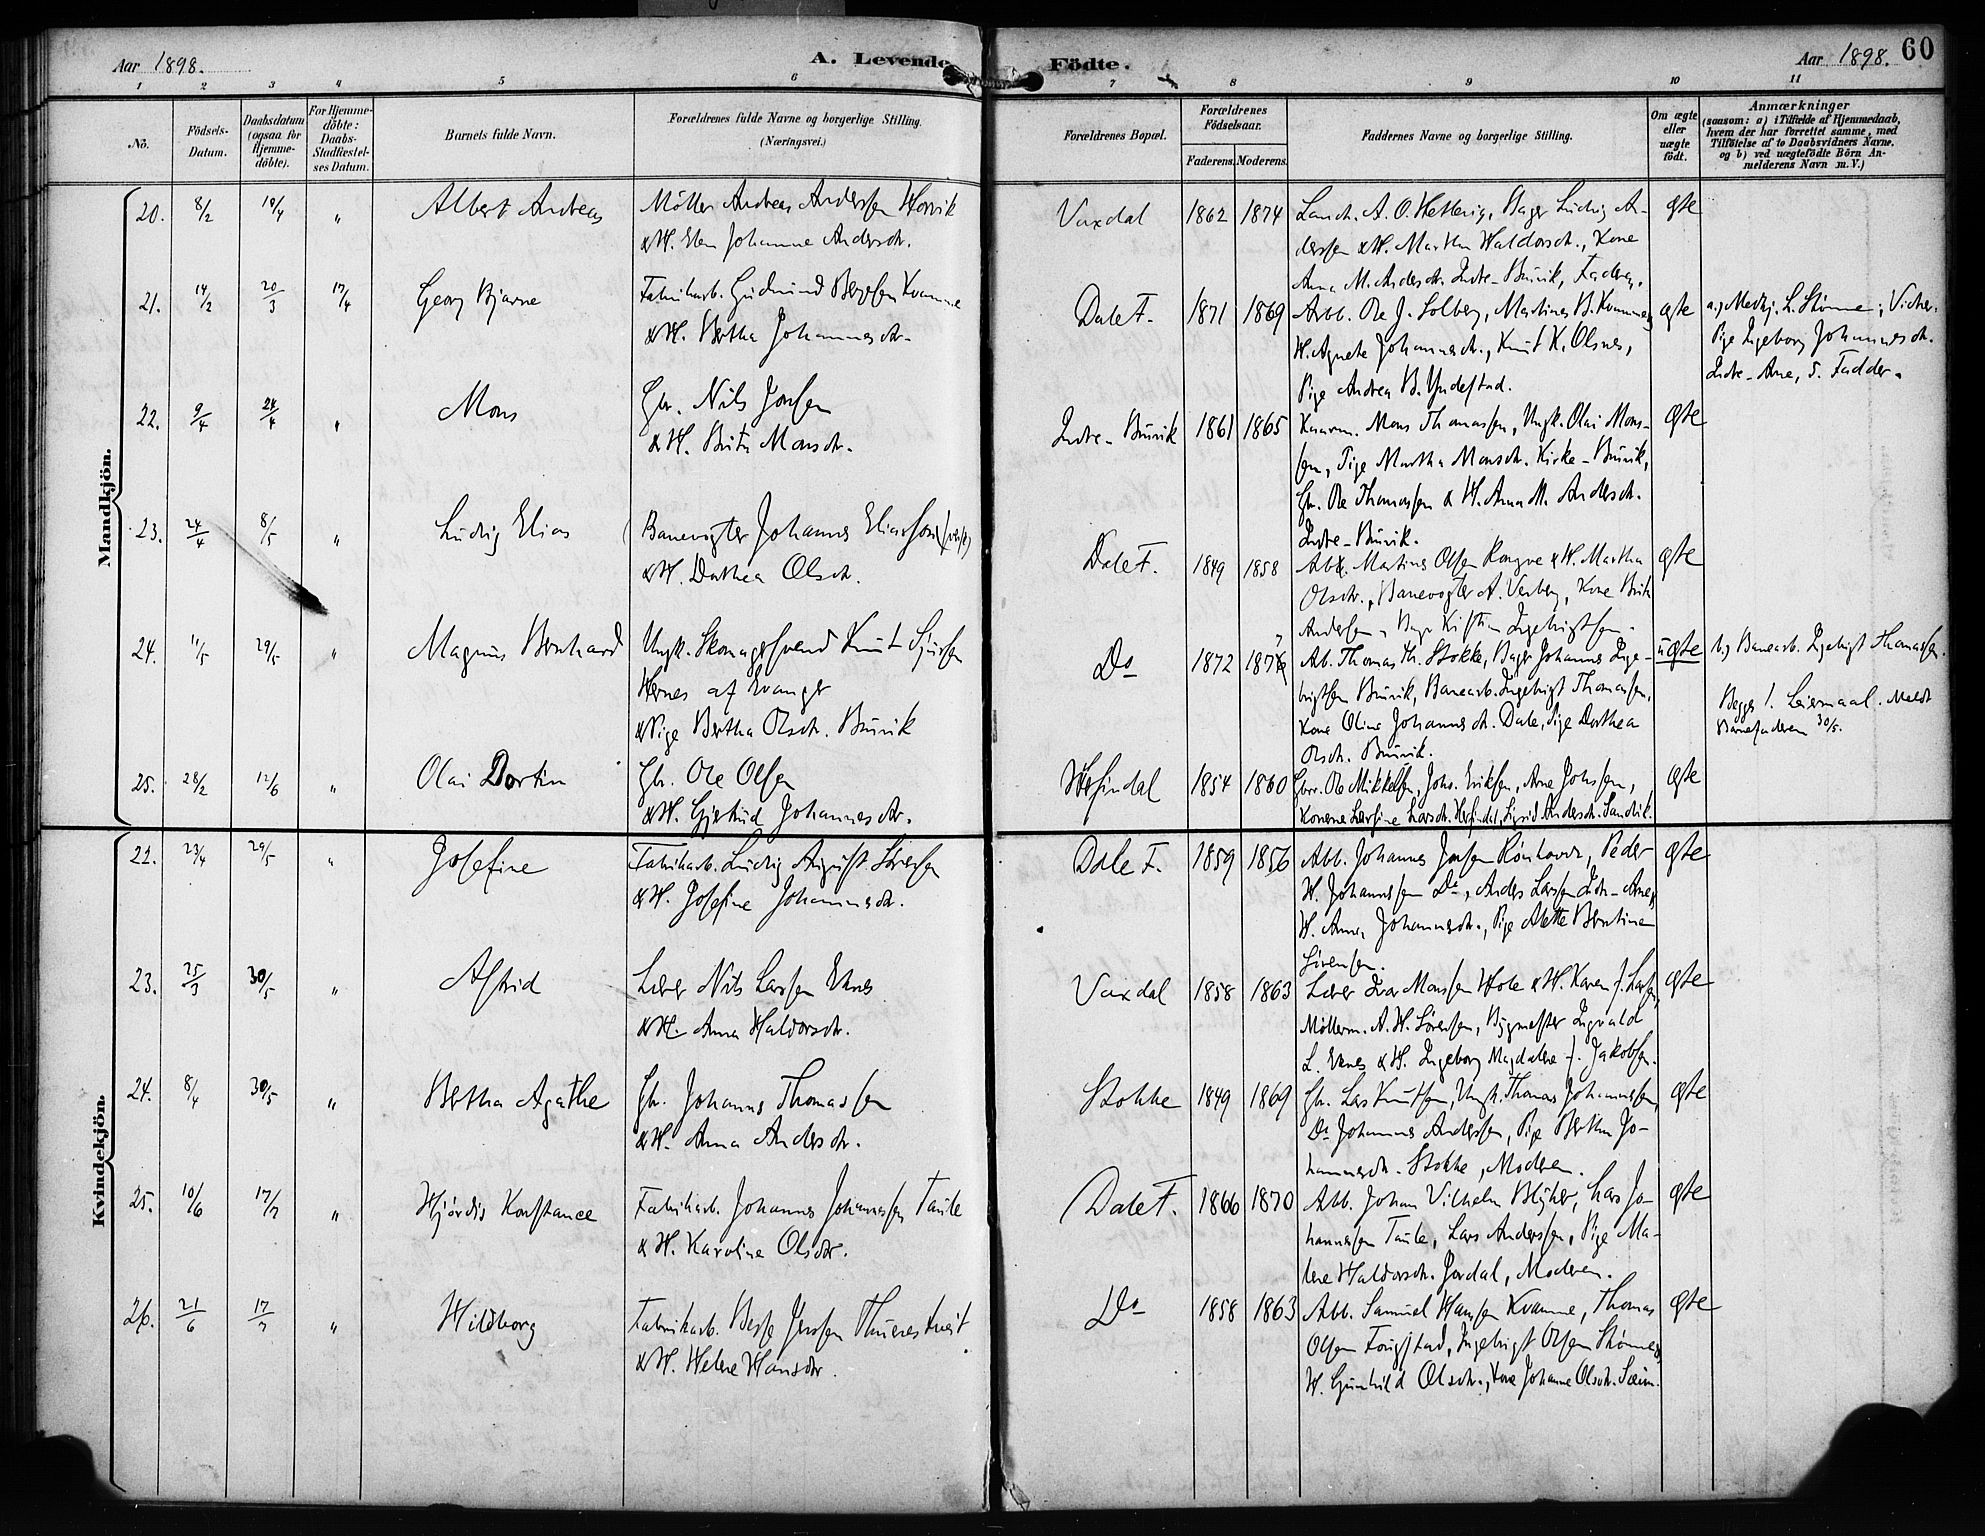 Aar 1898.
A. Levende Födte.
Aar 1898. 60
1 2 3 4 5 6 7 8 9 10 11
No.
Födsels-Datum.
Daabsdatum (ogsaa for Hjemmedöbte).
For Hjemmedöbte: Daabs-Stadfæstelses Datum.
Barnets fulde Navn.
Forældrenes fulde Navne og borgerlige Stilling. (Næringsvei.)
Forældrenes Bopæl.
Forældrenes Födselsaar.
Faderens. Moderens.
Faddernes Navne og borgerlige Stilling.
Om ægte eller uægte födt.
Anmærkninger (saasom: a) i Tilfælde af Hjemmedaab, hvem der har forrettet samme, med Tilföielse af to Daabsvidners Navne, og b) ved uægtefödte Börn Anmelderens Navn m. V.)
Mandkjön.
20. 8/2 19/4 " Albert Andreas Möller Andreas Anderssen
& H. Elen Johanne Andersdr.
Vaxdal 1862 1874 A. O. Ludvig An-
derssen & H. Martha Haldorsdr., Kone
Anna M. Andersdr. Indre-Bruvik, Faderen.
ægte
21. 14/2 20/3 17/4 Georg Bjarne Fabrikarb. Gudmund Kvamme
& H. Bertha Johannesdr.
Dale F. 1871 1869 Arbb. Ole J. Solberg, Martines B. Kvamme,
H. Agnete Johannesdr., Knut K. Olsnes,
Pige Andrea B. Yndestad.
ægte
a,) L. Stamme;
Pige Ingeborg Johannesdr.
Indre-Arne, 5. Fadder.
22. 9/4 24/4 " Mons Gbr. Nils Jonsen
& H. Brita Monsdr.
Indre-Bruvik 1861 1865 Mons Thomassen, Ungk. Olai Mons-
sen, Pige Martha Monsdr. Kirke-Bruvik,
Gbr. Ole Thomassen & H. Anna M. Andersdr.
Indre-Bruvik.
ægte
23. 24/4 8/5 " Ludvig Elias Banevogter Johannes Eliassen
& H. Dorthea Olsdr.
Dale F. 1849 1858 Arb. Martinus Olsen & H. Martha
Olsdr., Banevogter A. Kone Brita
Anderssen, Ingebrigtsen.
ægte
24. 11/5 29/5 " Magnus Bernhard Ungk. Skomagersvend Knut Sjursen
Hernes af Evanger
& Pige Bertha Olsdr. Bruvik
Do 1872 187 Ab. Thomas Th. Stokke, Bager Johannes Inge-
brigtsen Bruvik, Banearb. Ingebrigt Thomassen,
Kone Oline Johannesdr. Dale, Pige Dorthea
Olsdr. Bruvik.
uægte
b,) Banearb. Ingebrigt Thomassen.
Begges 1. Leiermaal. Meldt
Barnefaderen 30/5.
25. 28/2 12/6 " Olai Dortin Gbr. Ole Olsen
& H. Gjertrud Johannesdr.
Herfindal 1854 1860 Gbr. Ole Mikkelsen, Johs. Eriksen, Arne Johssen,
Konerne Larsine Larsdr. Herfindal, Sigrid Andersdr. Sandvik.
ægte
Kvindekjön.
22. 23/4 29/5 " Josefine Fabrikarb. Ludvig August Sörensen
& H. Josefine Johannesdr.
Dale F. 1859 1856 Abb. Johannes Jonsen Rönhovde, Peder
H. Johannessen Do, Anders Larsen Indre-Arne,
H. Anna Johannesdr., Pige Alette Berntine
Sörensen.
ægte
23. 25/3 30/5 " Astrid Lærer Nils Larssen Eknes
& H. Anna Haldorsdr.
Vaxdal 1858 1863 Lærer Ivar Monssen Hole & H. Karen f. Larsen,
Möllerm. A. H. Sörensen, Bygmester Ingvald
L. Eknes & H. Ingeborg Magdalene f. Jakobsen.
ægte
24. 8/4 30/5 " Bertha Agathe Gbr. Johannes Thomassen
& H. Anna Andersdr.
Stokke 1849 1869 Gbr. Lars Knutsen, Ungk. Thomas Johannessen,
Do Johannes Anderssen, Pige Bertha Jo-
hannesdr. Stokke, Moderen.
ægte
25. 10/6 17/7 " Hjördis Konstance Fabrikarb. Johannes Johannessen Taule
& H. Karoline Olsdr.
Dale F. 1866 1870 Abb. Johan Vilhelm Lars Jo-
hannessen Taule, Lars Anderssen, Pige Ma-
lene Haldorsdr. Jordal, Moderen.
ægte
26. 21/6 17/7 " Hildborg Fabrikarb. Jenssen
& H. Helene Hansdr.
Do 1858 1863 Abb. Samuel Hanssen Kvamme, Thomas
Olsen Ingebrigt Olsen
H. Gunhild Olsdr., Kone Johanne Olsdr. Seim.
ægte